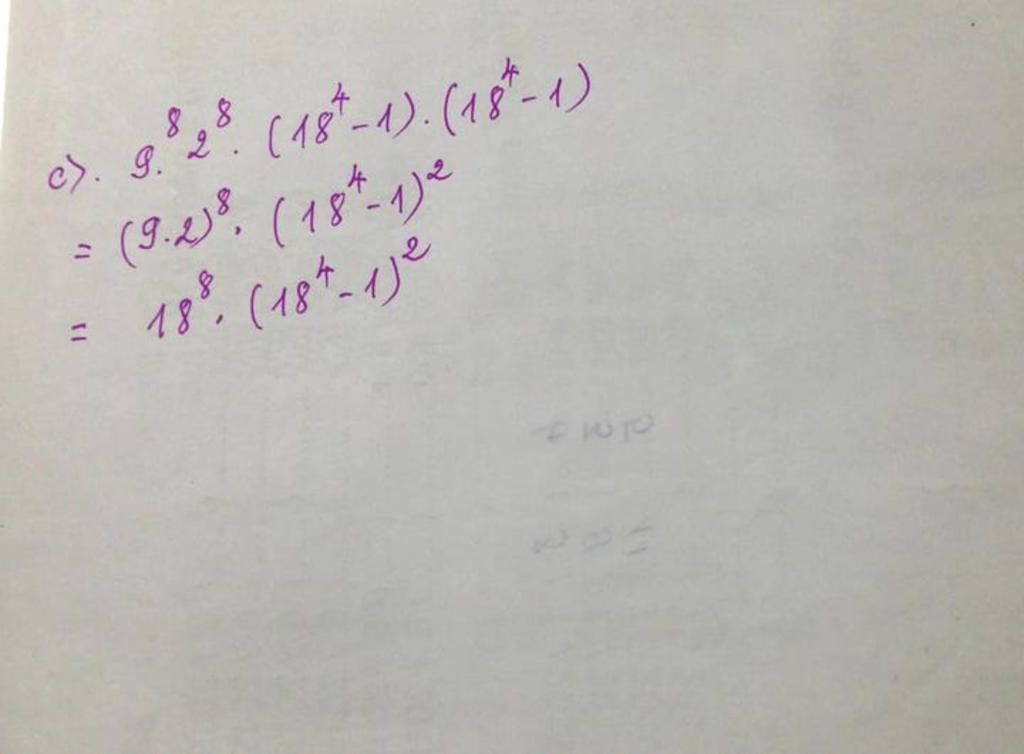 c). 9.⁸ 2⁸ . (18⁴-1).(18⁴-1)
= (9.2)⁸. (18⁴-1)²
= 18⁸. (18⁴-1)²